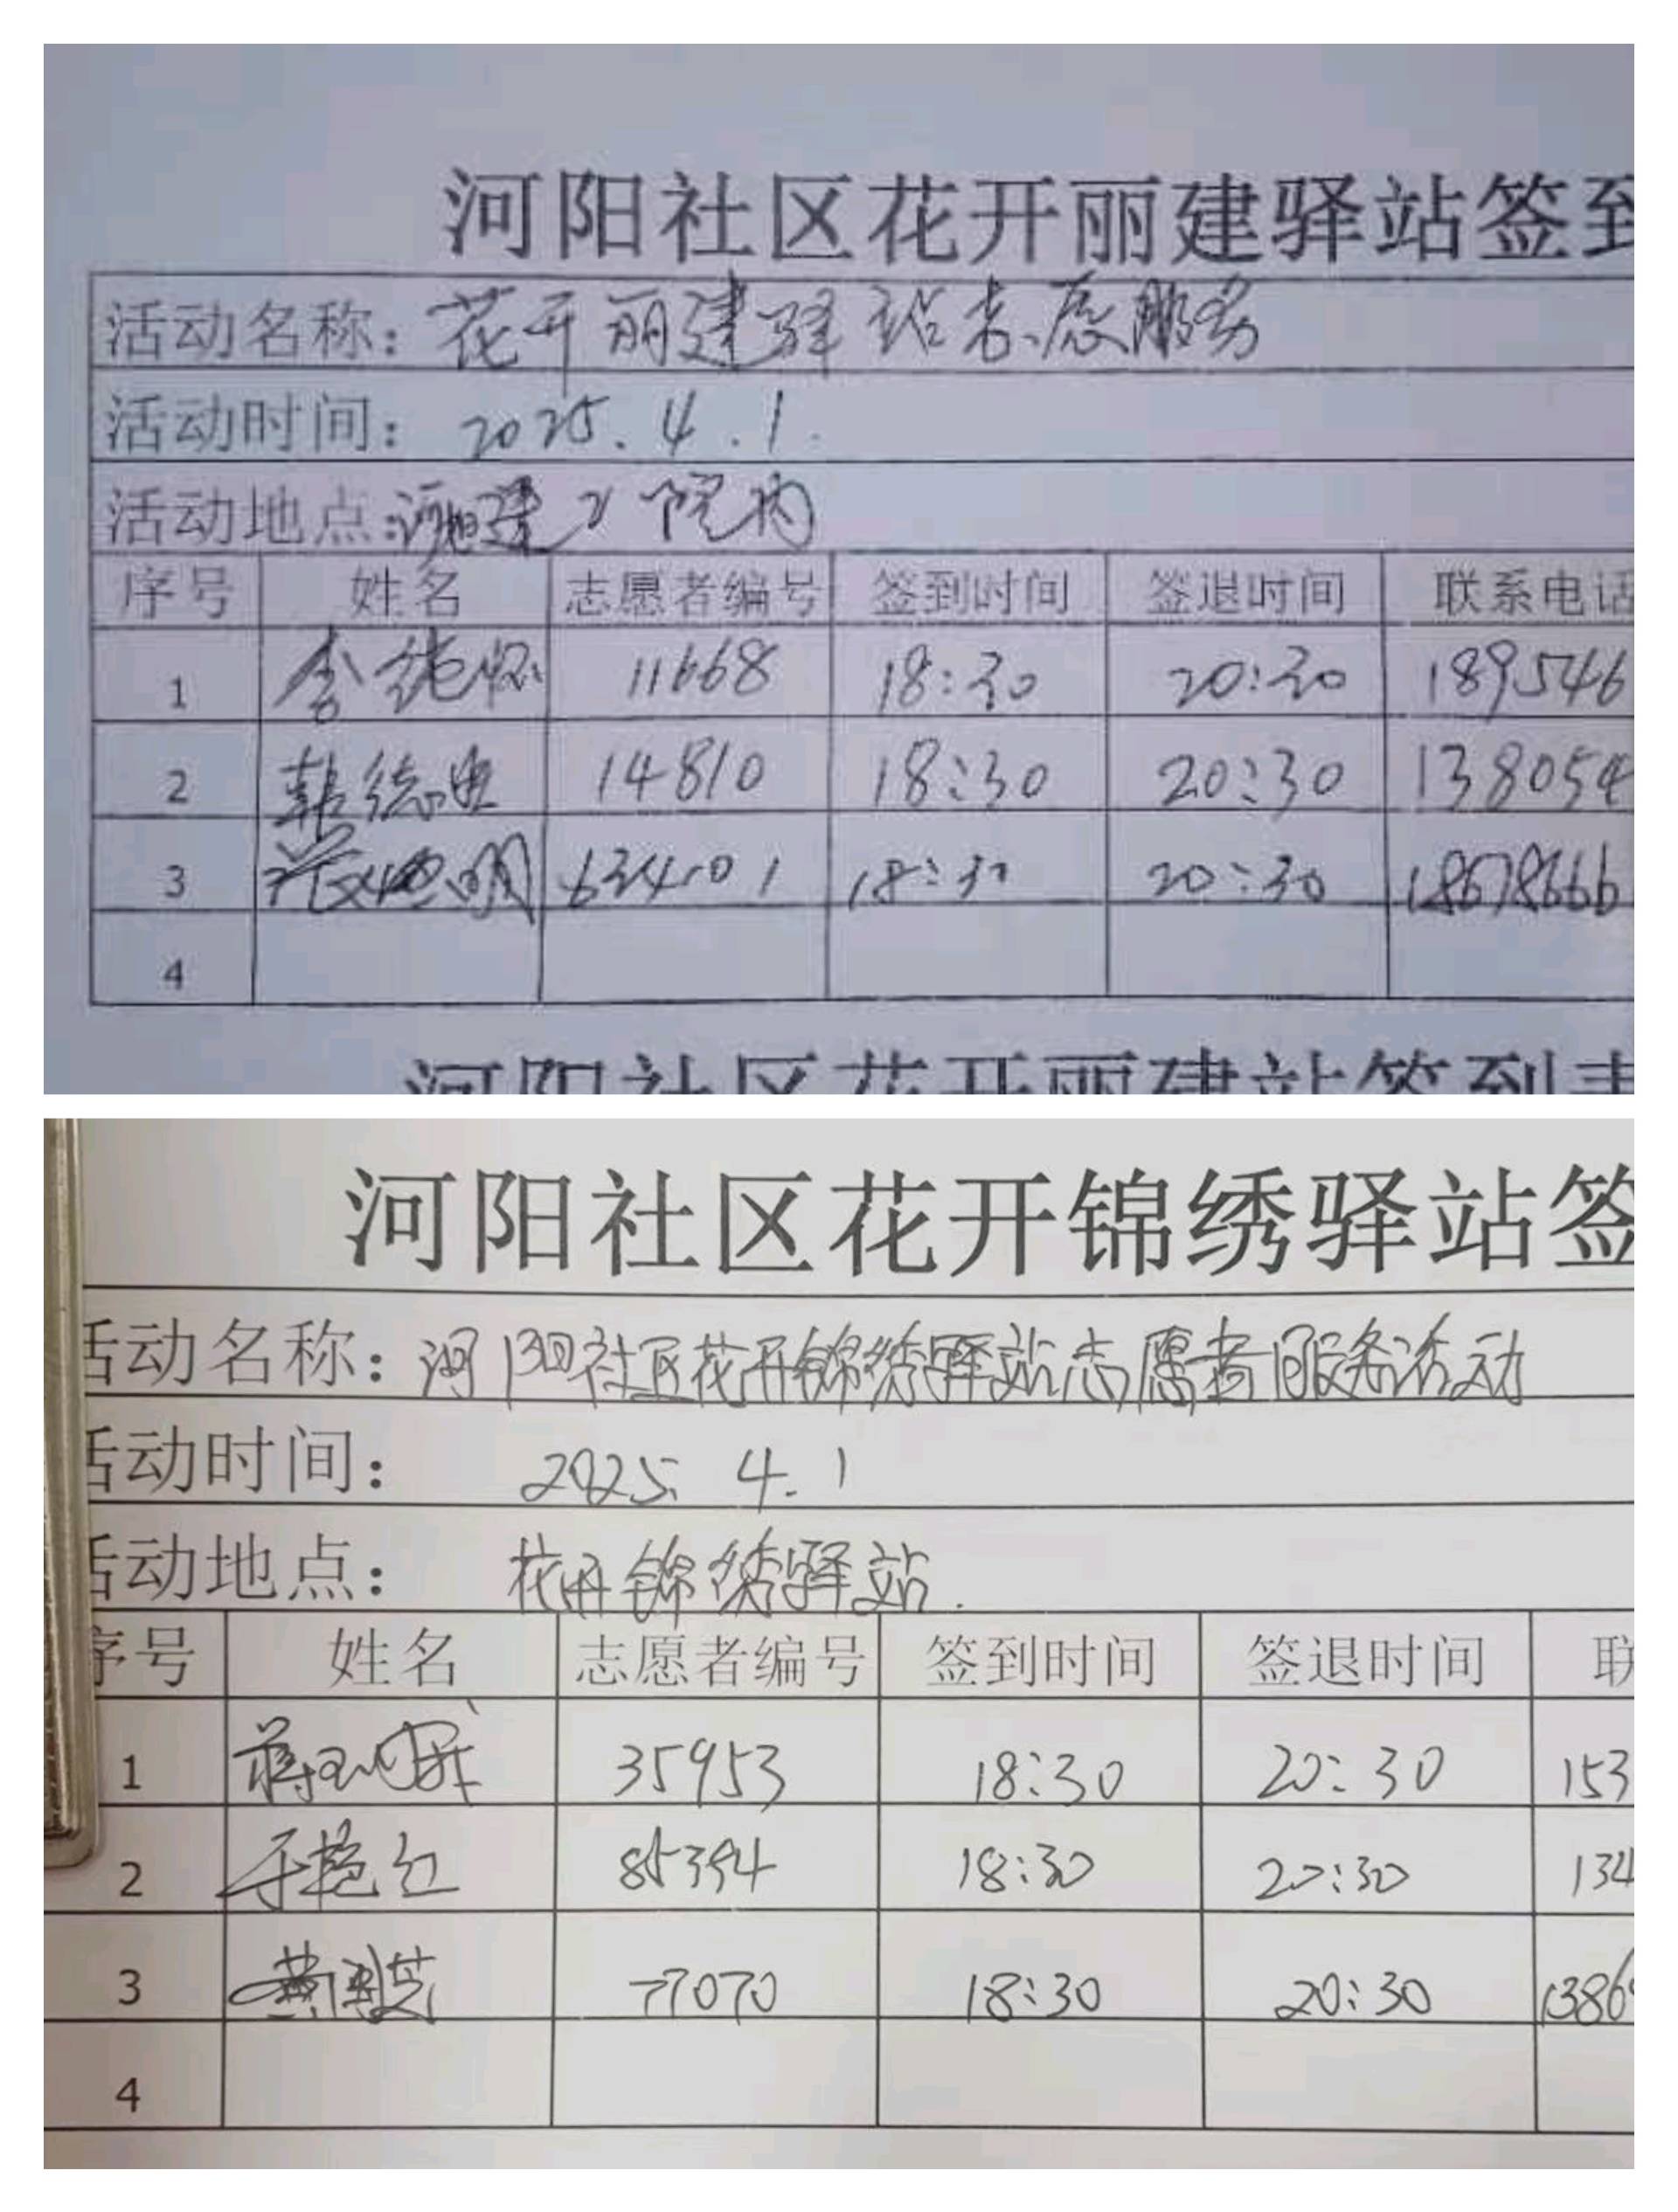 河阳社区花开丽建驿站签到
活动名称：花开丽建驿站志愿服务
活动时间：2025.4.1.
活动地点：建工院内
序号 姓名 志愿者编号 签到时间 签退时间 联系电话
1 11668 18:30 20:30 189546
2 韩德 14810 18:30 20:30 138054
3 明 634101 18:30 20:30 18678666
4
河阳社区花开丽建站签到表
河阳社区花开锦绣驿站签
活动名称：河阳社区花开锦绣驿站志愿者服务活动
活动时间：2025.4.1
活动地点：花开锦绣驿站.
序号 姓名 志愿者编号 签到时间 签退时间 联
1 蒋 35953 18:30 20:30 153
2 于艳红 85394 18:30 20:30 134
3 黄 芝 77070 18:30 20:30 1386
4